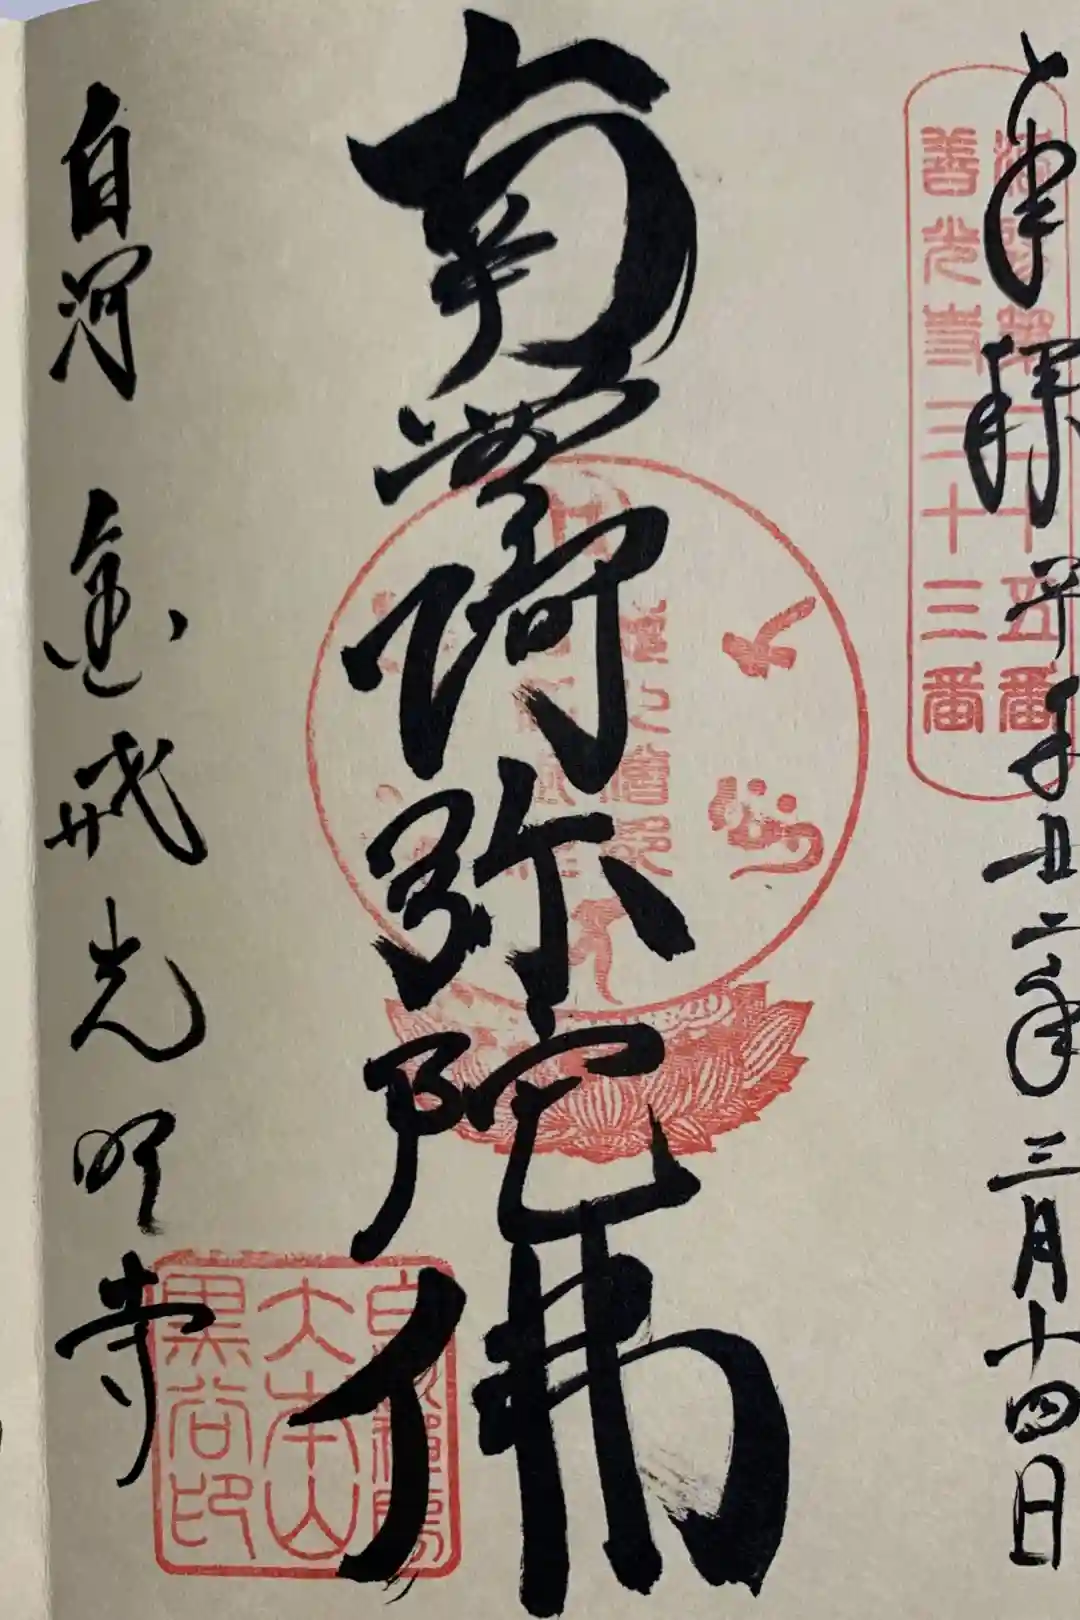 奉拝 平成廿二年三月十四日
善光寺三十三番
南無阿弥陀佛
白河 金戒光明寺
大本山
黒谷印